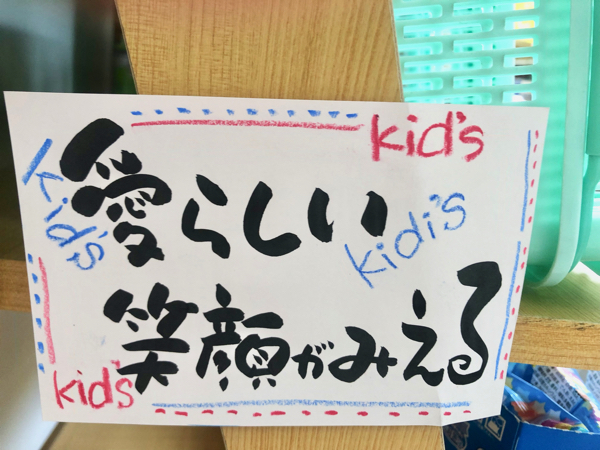 kid's
kid's
愛らしい
kidi's
笑顔がみえる
kid's